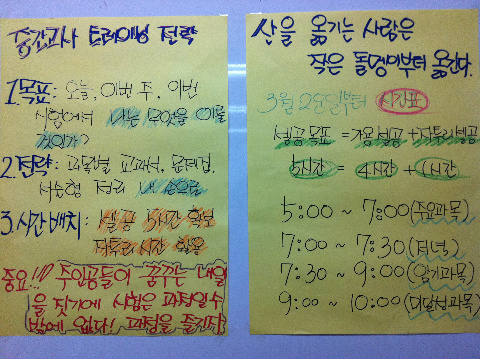 중간고사 트레이닝 전략
1. 목표: 오늘, 이번 주, 이번
시험에서 나는 무엇을 이룰
것인가?
2. 전략: 과목별 교과서, 문제집,
서술형 정리 내 손으로
3. 시간배치: 1일 실공 5시간 확보
자투리 시간 활용
중요!!! 주인공들이 꿈꾸는 내일
을 짓기에 시험은 과정일 수
밖에 없다! 과정을 즐기자!
산을 옮기는 사람은
작은 돌멩이부터 옮긴다.
3월 28일부터 시간표
실공목표 = 가용실공 + 자투리실공
5시간 = 4시간 + 1시간
5:00 ~ 7:00 (주요과목)
7:00 ~ 7:30 (저녁)
7:30 ~ 9:00 (암기과목)
9:00 ~ 10:00 (미달성과목)